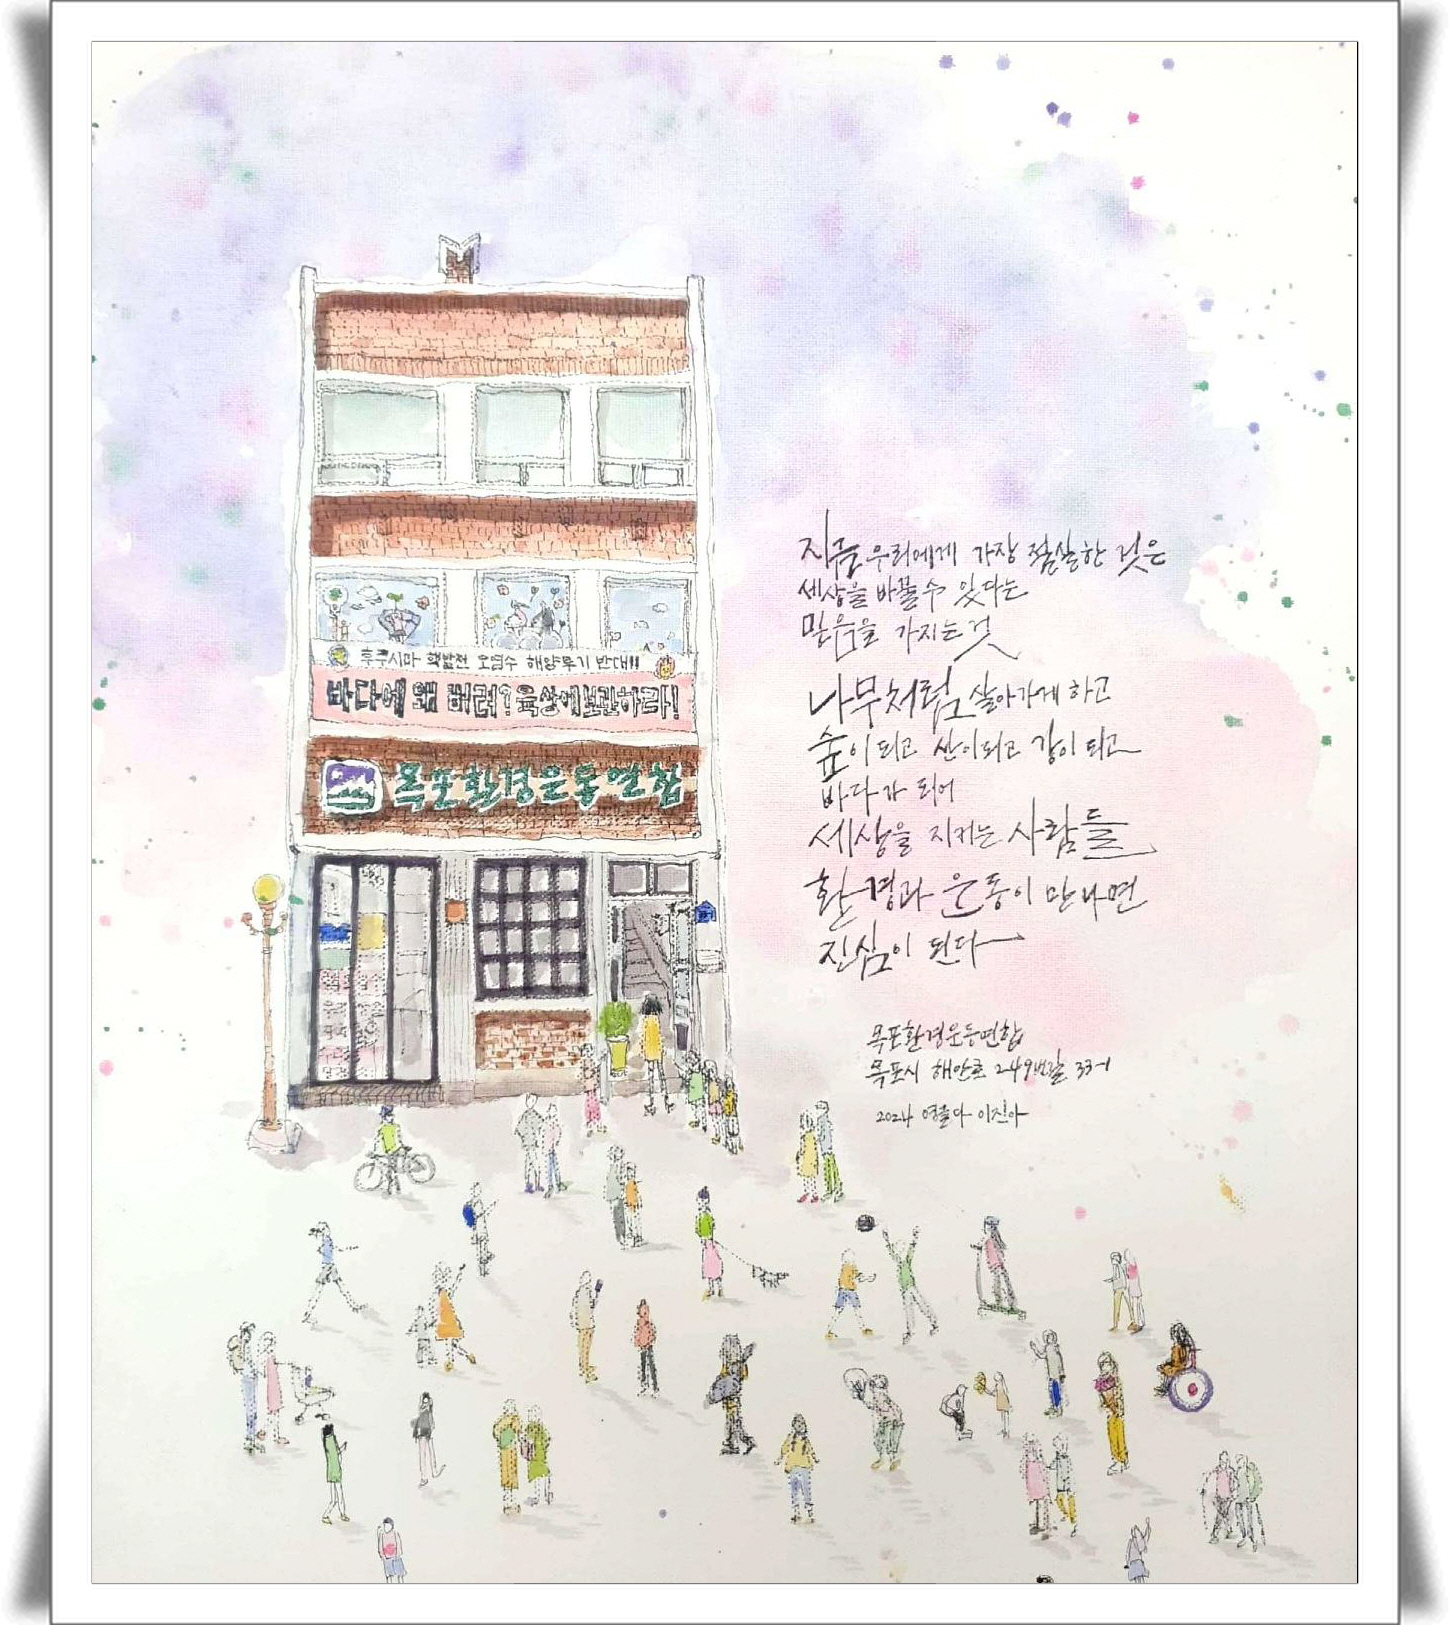 후쿠시마 핵발전 오염수 해양투기 반대!!
바다에 왜 버려? 육상에 보관하라!
목포환경운동연합
지금 우리에게 가장 절실한 것은
세상을 바꿀 수 있다는
믿음을 가지는 것
나무처럼 살아가게 하고
숲이 되고 산이 되고 강이 되고
바다가 되어
세상을 지키는 사람들
환경과 운동이 만나면
진심이 된다
목포환경운동연합
목포시 해안로 249번길 33-1
2024 이진아